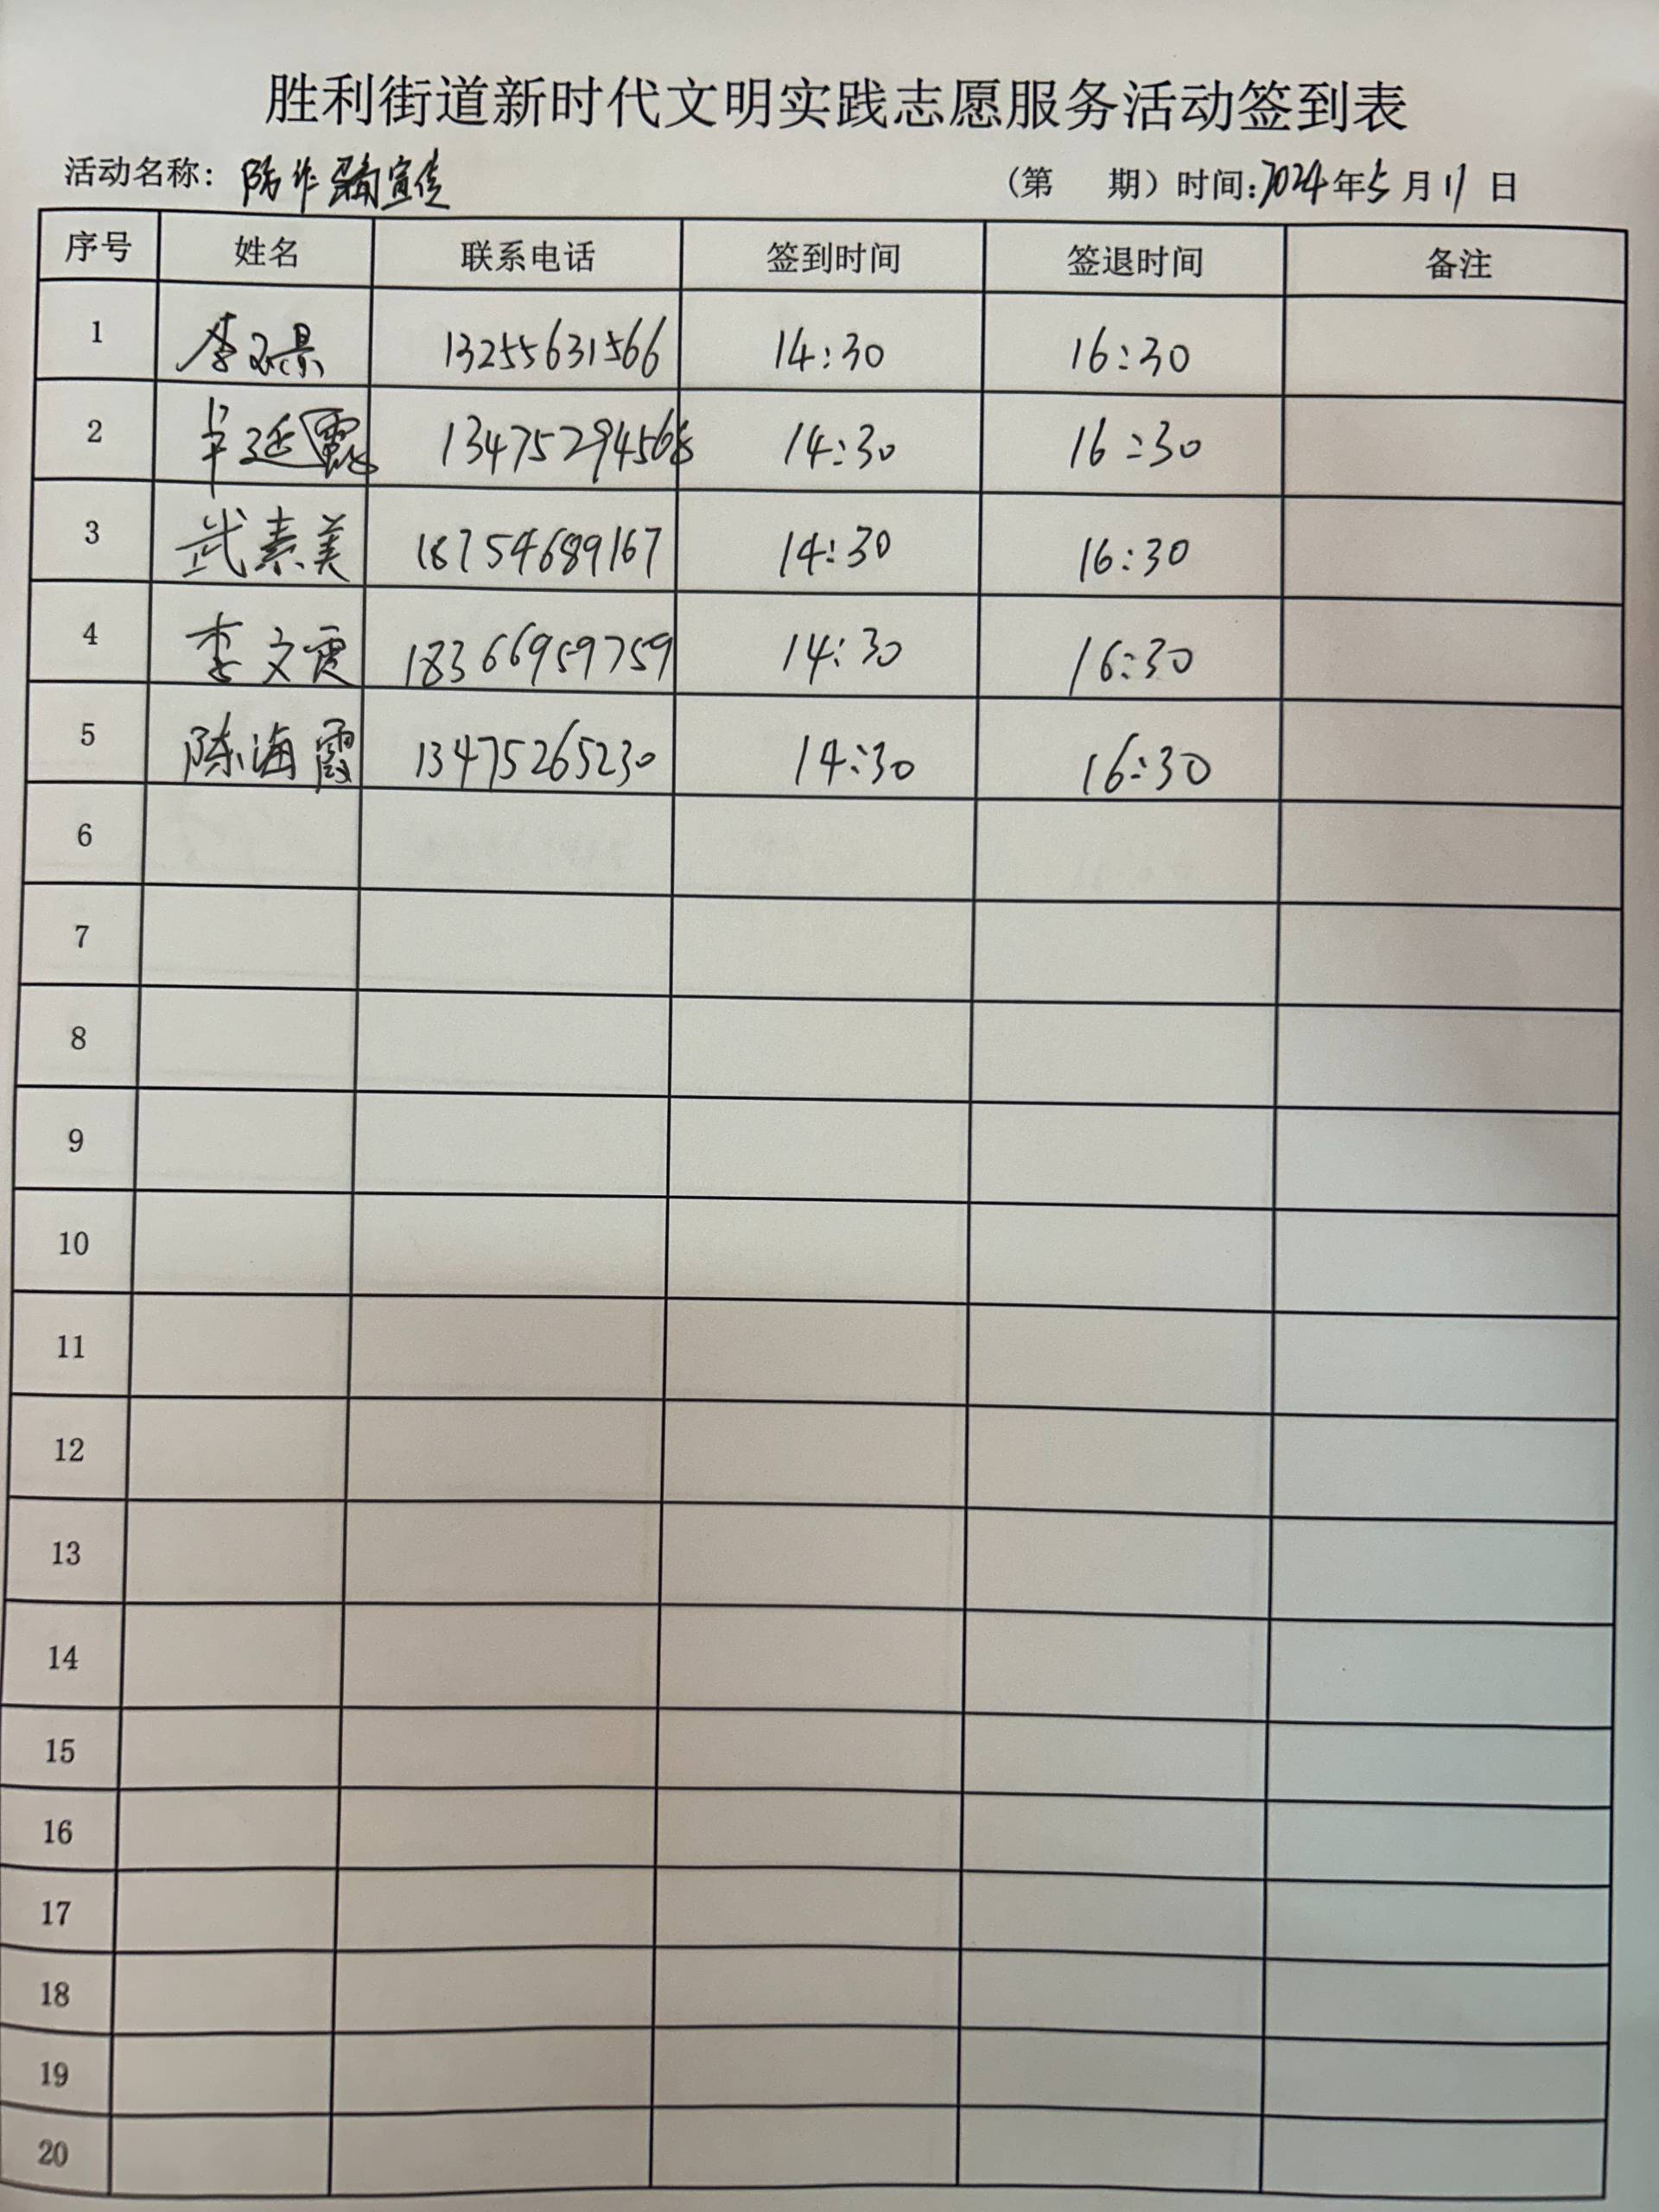 胜利街道新时代文明实践志愿服务活动签到表
活动名称：防诈骗宣传 （第 期）时间：2024年5月11日
序号 姓名 联系电话 签到时间 签退时间 备注
1 李 景 13255631566 14:30 16:30
2 延 13475294568 14:30 16:30
3 武素美 18754689167 14:30 16:30
4 李文霞 18366959759 14:30 16:30
5 陈海霞 13475265230 14:30 16:30
6
7
8
9
10
11
12
13
14
15
16
17
18
19
20